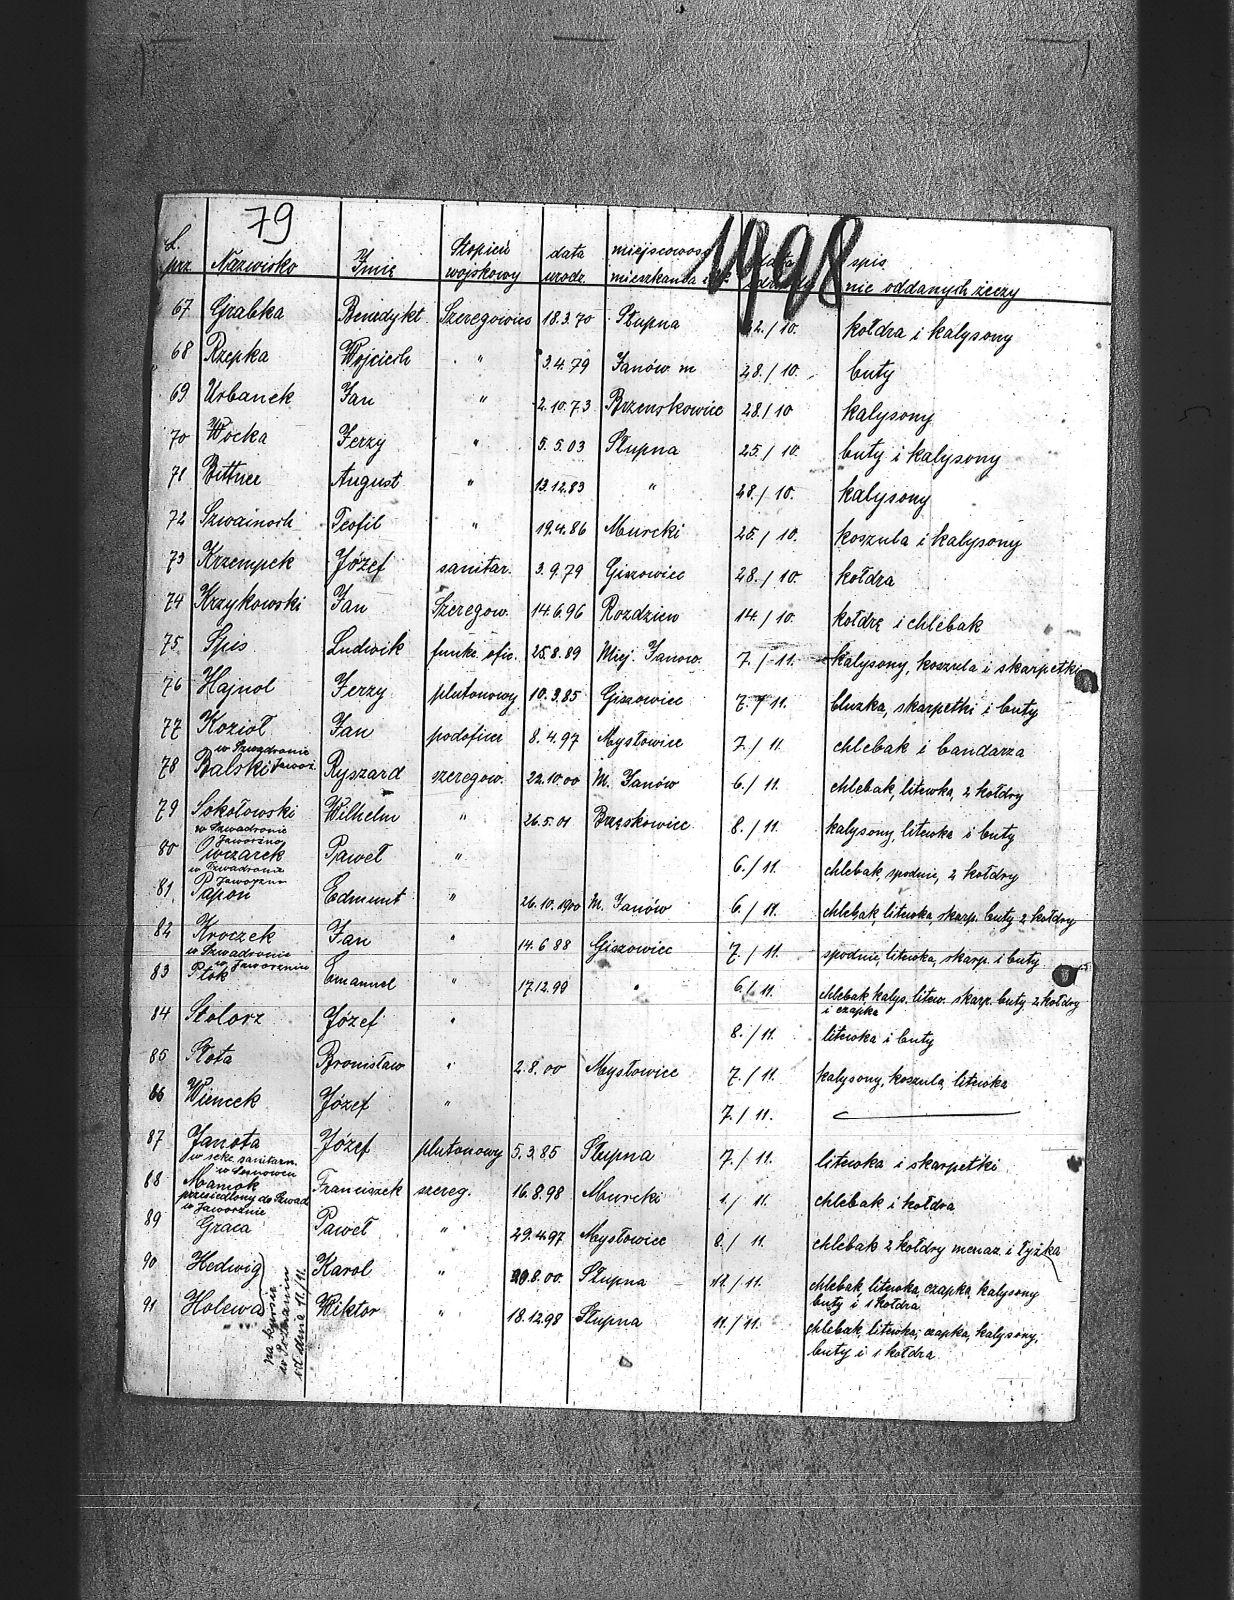 79
1998
L. prz Nazwisko Imię Stopień wojskowy data urodz. miejscowość spis nie oddanych rzeczy
67 Grabka Benedykt Szeregowiec 18.3.70 Słupna 22./10. kołdra i kalysony
68 Rzepka Wojciech " 3.4.79 Janów m 28./10. buty
69 Urbanek Jan " 2.10.73 Brzenskowice 28./10 kalysony
70 Wocka Jerzy " 5.5.03 Słupna 25./10. buty i kalysony
71 Bittner August " 13.12.83 " 28./10. kalysony
72 Szwainoch Teofil " 19.4.86 Murcki 25./10. koszula i kalysony
73 Krzempek Józef sanitar. 3.9.79 Giszowiec 28./10. kołdra
74 Krzykowski Jan Szeregow. 14.6.96 Rozdzien 14./10. kołdrę i chlebak
75 Spis Ludwik funkc. ofic. 25.8.89 Miej. Janow. 7./11. kalysony, koszula i skarpetki
76 Hajnol Jerzy plutonowy 10.3.85 Giszowiec 7./11. bluzka, skarpetki i buty
77 Kozioł Jan podoficer 8.4.97 Mysłowice 7./11. chlebak i bandarza
w Szwadronie Jaworz.
78 Balski Ryszard szeregow. 22.10.00 M. Janów 6./11. chlebak, litewka, 2 kołdry
79 Sokołowski Wilhelm " 26.5.01 Brzęskowice 8./11. kalysony, litewka i buty
w Szwadronie Jaworzno
80 Owczarek Paweł " 6./11. chlebak, spodnie, 2 kołdry
w Szwadronie Jaworzno
81. Papon Edmunt " 26.10.1900 M. Janów 6./11. chlebak, litewka, skarp. buty 2 kołdry
82 Kroczek Jan " 14.6.88 Giszowiec 7./11. spodnie, litewka, skarp. i buty
w Szwadronie w Jaworznie
83 Ptok Emanuel " 17.12.99 " 6./11. chlebak, kalys. litew. skarp. buty, 2 kołdry
i czapka
84 Stolorz Józef " 8./11. litewka i buty
85 Słota Bronisław " 2.8.00 Mysłowice 7./11. kalysony, koszula, litewka
86 Wiencek Józef " 7./11.
87 Janota Józef plutonowy 5.3.85 Słupna 7./11. litewka i skarpetki
w sekc. sanitarn.
w Sosnowcu
88 Mamok Franciszek szereg. 16.8.98 Murcki 1./11. chlebak i kołdra
przesiedlony do Szwad.
w Jaworznie
89 Graca Paweł " 29.4.97 Mysłowice 8./11. chlebak 2 kołdry menaż. i łyżka
90 Hedwig Karol " 20.8.00. Słupna 11./11. chlebak, litewka, czapka, kalysony
buty i 1 kołdra
91 Holewa Wiktor " 18.12.98 Słupna 11./11. chlebak, litewka, czapka, kalysony,
buty i 1 kołdra
na kursie
w Poznaniu
od dnia 11/11.